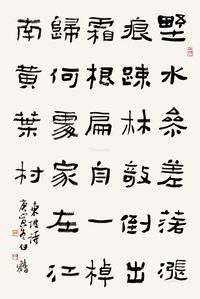 野水參差落漲
痕疎林敧倒出
霜根扁舟一棹
歸何處家在江
南黃葉村
東坡詩
庚寅冬